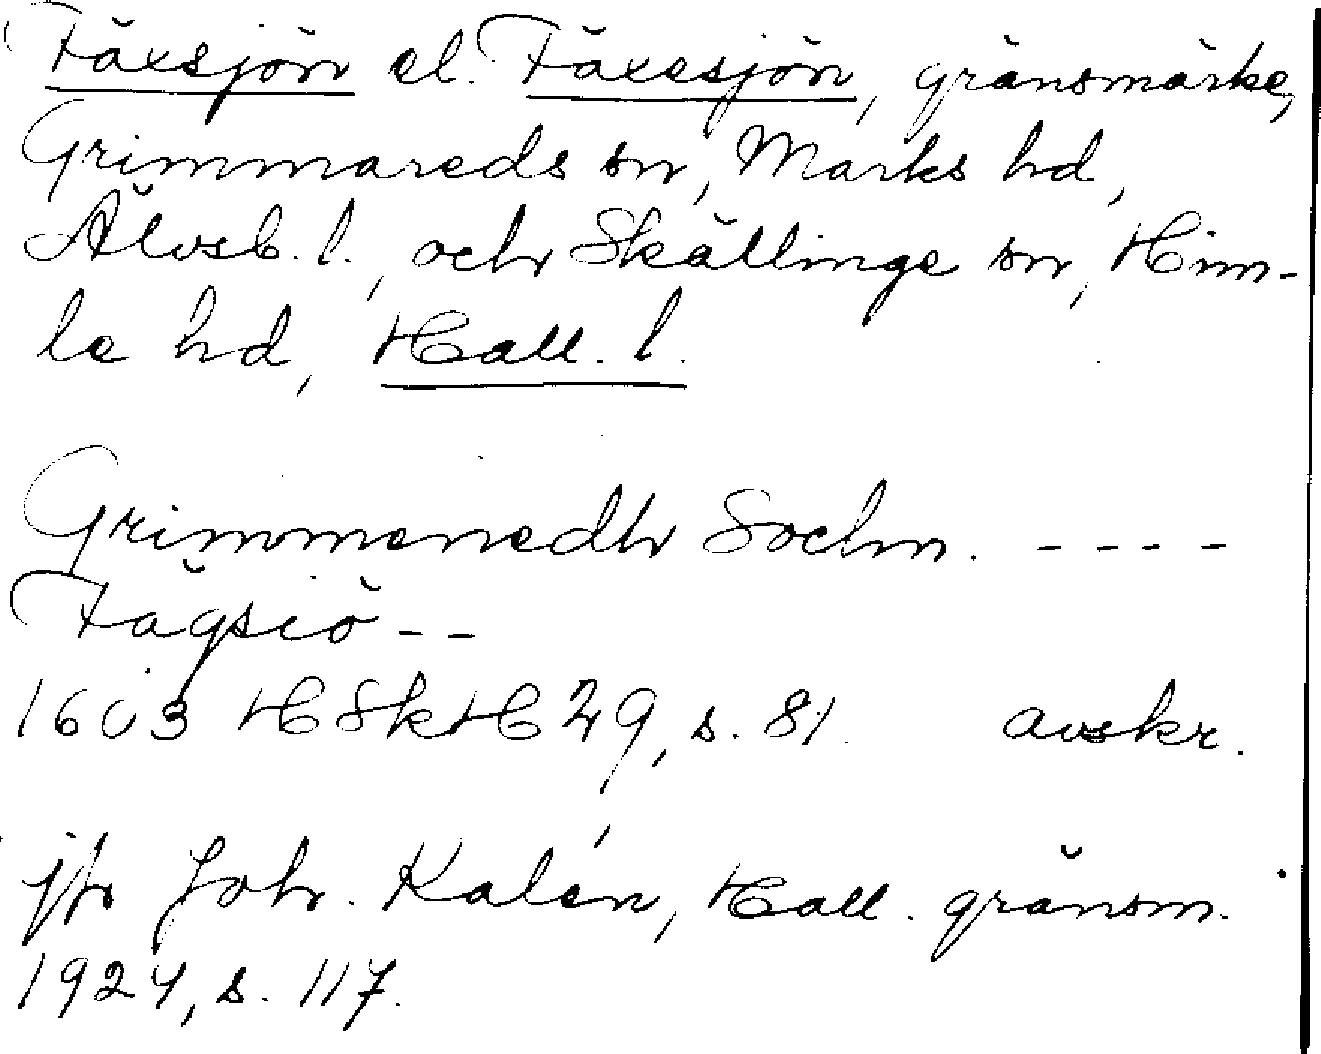 Fäxsjön el. Fäxesjön, gränsmärke,
Grimmareds sn, Marks hd,
Älvsb. l., och Skällinge sn, Him-
le hd, Hall. l.
Grimmeredh Sochn. - - - -
Fägsiö - -
1603 HSkH 29, s. 81. avskr.
jfr Joh. Kalén, Hall. gränsm.
1924, s. 117.